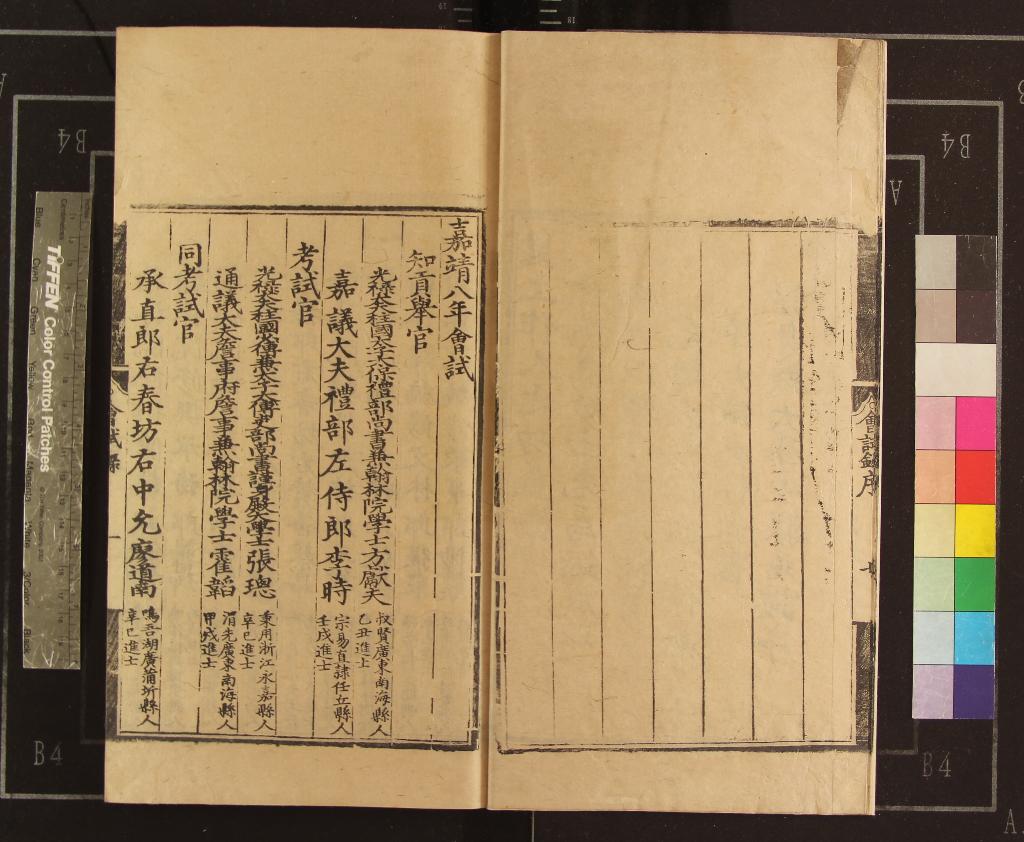 會試錄序
嘉靖八年會試
知貢舉官
光祿大夫柱國少保兼太子太保禮部尚書兼翰林院學士方獻夫 叔賢廣東南海縣人乙丑進士
嘉議大夫禮部左侍郎李時 宗易直隸任丘縣人壬戌進士
考試官
光祿大夫柱國少傅兼太子太傅吏部尚書謹身殿大學士張璁 秉用浙江永嘉縣人辛巳進士
通議大夫詹事府詹事兼翰林院學士霍韜 渭先廣東南海縣人甲戌進士
同考試官
承直郎右春坊右中允廖道南 鳴吾湖廣蒲圻縣人辛巳進士
會試錄
一
TIFFEN Color Control Patches
B4
B4
B4
B4
A